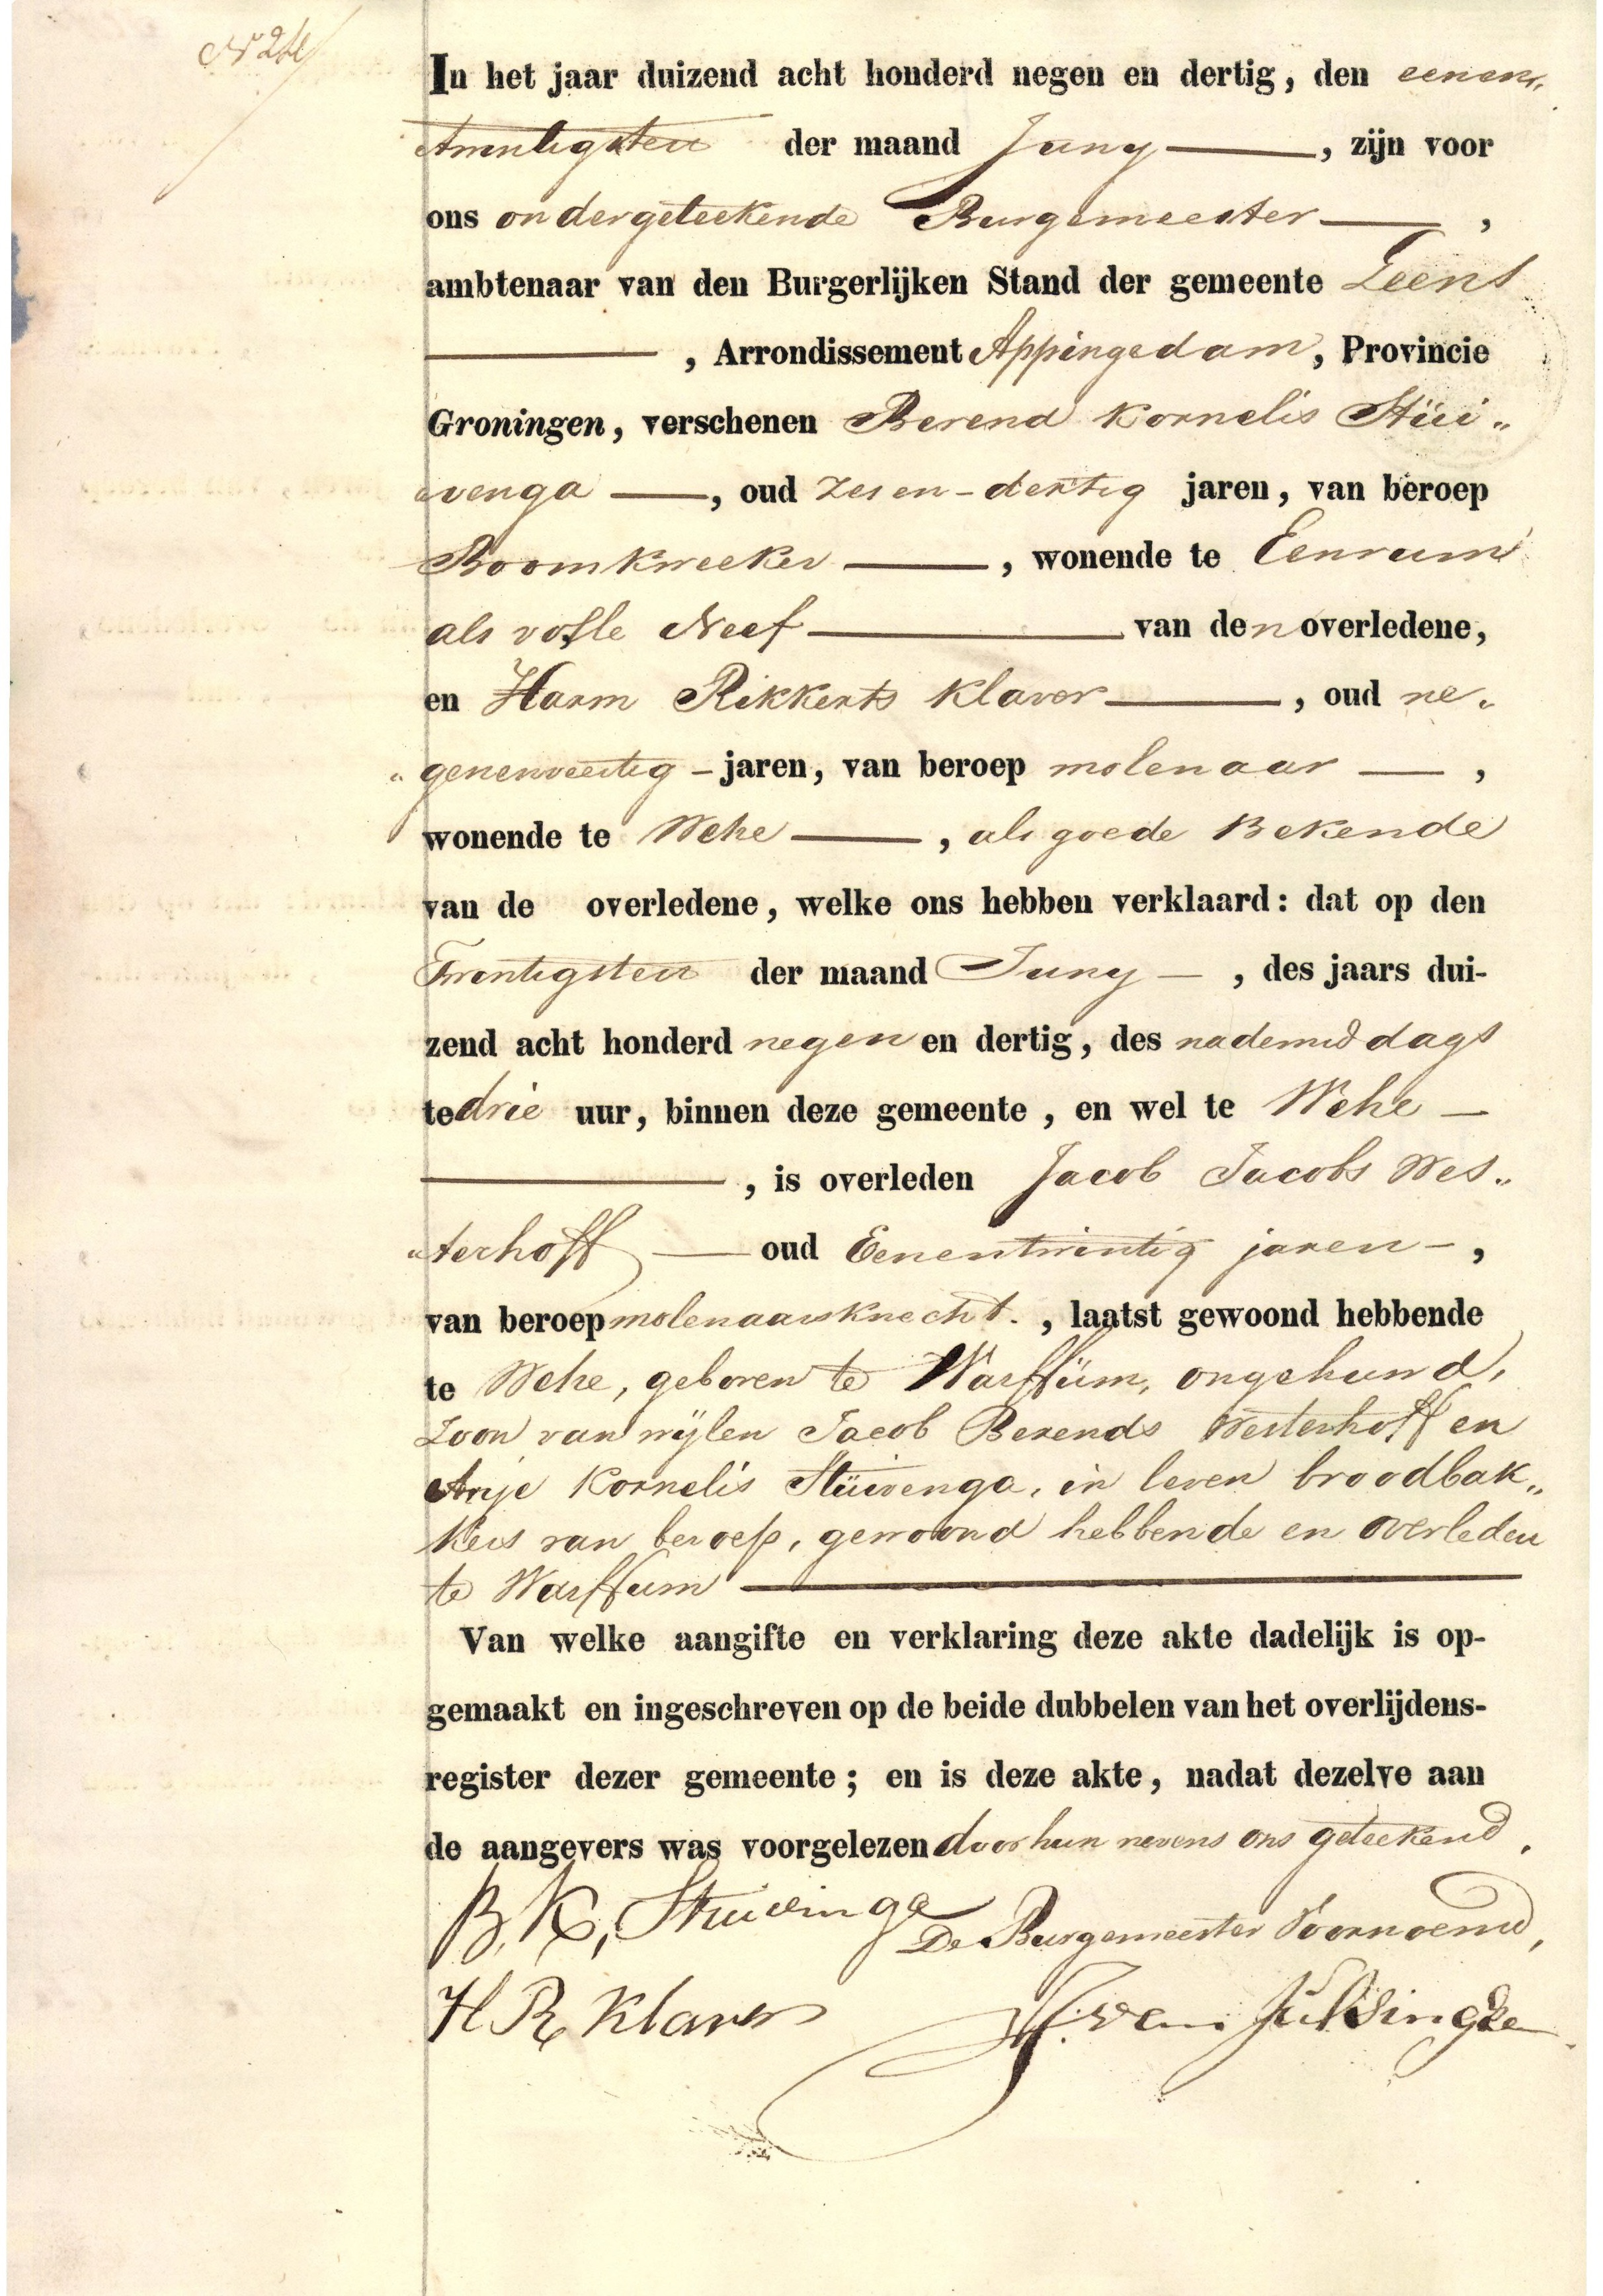 In het jaar duizend acht honderd negen en dertig, den eenen„
twintigsten der maand Juny —, zijn voor
ons ondergeteekende Burgemeester —,
ambtenaar van den Burgerlijken Stand der gemeente Leens
—, Arrondissement Appingedam, Provincie
Groningen, verschenen Berend Kornelis Stüi„
„venga —, oud zesen-dertig jaren, van beroep
Boomkweeker —, wonende te Eenrum
als volle Neef — van den overledene,
en Harm Rikkerts Klaver —, oud ne„
„genenveertig - jaren, van beroep molenaar —,
wonende te Wehe —, als goede Bekende
van de overledene, welke ons hebben verklaard: dat op den
Twintigsten der maand Juny —, des jaars dui-
zend acht honderd negen en dertig, des nademiddags
te drie uur, binnen deze gemeente, en wel te Wehe —
—, is overleden Jacob Jacobs Wes„
„terhoff — oud Eenentwintig jaren -,
van beroep molenaarsknecht., laatst gewoond hebbende
te Wehe, geboren te Warffüm, ongehuwd,
Zoon van wijlen Jacob Berends Westerhoff en
Anje Kornelis Stüivenga, in leven broodbak„
kers van beroep, gewoond hebbende en overleden
te Warffum —
Van welke aangifte en verklaring deze akte dadelijk is op-
gemaakt en ingeschreven op de beide dubbelen van het overlijdens-
register dezer gemeente; en is deze akte, nadat dezelve aan
de aangevers was voorgelezen door hun nevens ons geteekend.
B. K. Stuivinga
De Burgemeester Voornoemd,
H R Klaver